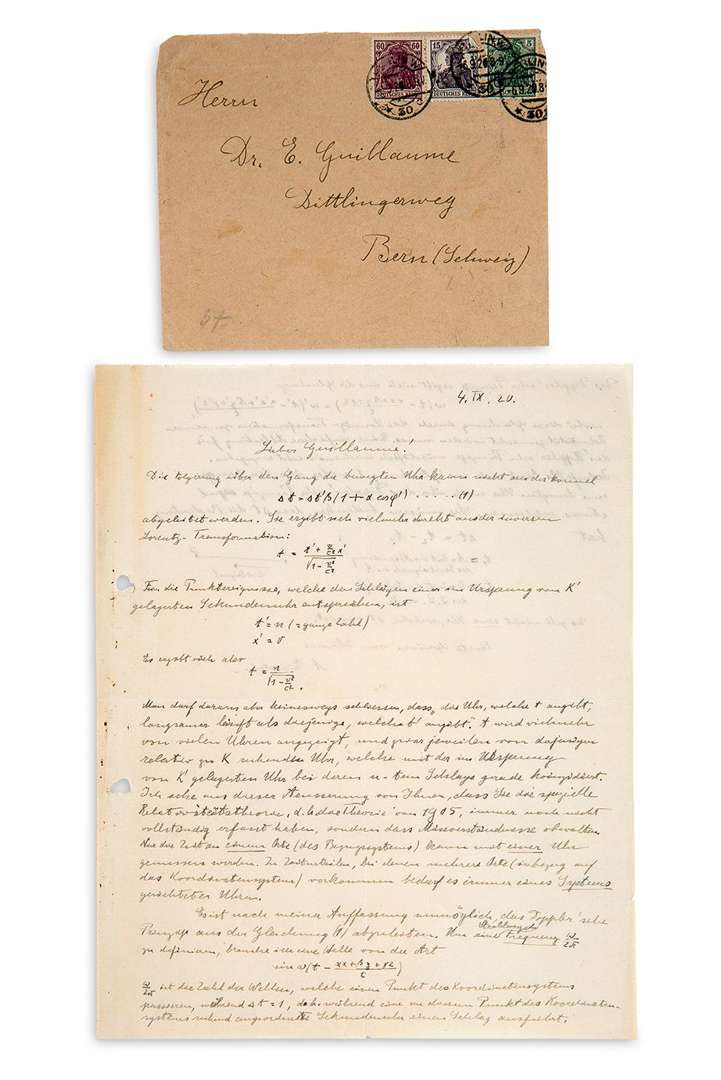 60 60
15
5
DEUTSCHES REICH
Herrn
Dr. E. Guillaume
Dittlingerweg
Bern (Schweiz)
57
4. IX. 20.
Lieber Guillaume!
Die Folgerung über den Gang der bewegten Uhr kann nicht aus der Formel
Δt = Δt'β(1 + α cos φ') ..... (1)
abgeleitet werden. Sie ergibt sich vielmehr direkt aus der inversen
Lorentz-Transformation:
t = (t' + v/c² x') / √(1 - v²/c²)
Für die Punktereignisse, welche den Schlägen einer im Ursprung von K'
gelagerten Sekundenuhr entsprechen, ist
t' = n (= ganze Zahl)
x' = 0
Es ergibt sich also
t = n / √(1 - v²/c²) .
Man darf daraus aber keineswegs schliessen, dass die Uhr, welche t angibt,
langsamer läuft als diejenige, welche t' angibt. t wird vielmehr
von vielen Uhren angezeigt, und zwar jeweilen von derjenigen
relativ zu K ruhenden Uhr, welche mit der im Ursprung
von K' gelagerten Uhr bei deren n-tem Schlage grade koinzidiert.
Ich sehe aus dieser Äusserung von Ihnen, dass Sie die spezielle
Relativitätstheorie, d. h. das Theorie von 1905, immer noch nicht
vollständig erfasst haben, sondern dass Missverständnisse obwalten.
Nur die Zeit an einem Orte (des Bezugsystems) kann mit einer Uhr
gemessen werden. Zu Zeiturteilen, bei denen mehrere Orte (inbezug auf
das Koordinatensystem) vorkommen bedarf es immer eines Systems
gerichteter Uhren.
Es ist nach meiner Auffassung unmöglich, das Doppler'sche
Prinzip aus der Gleichung (1) abzuleiten. Um eine Frequenz ω/2π
zu definieren, brauche ich eine Welle von der Art
sin ω(t - (αx + βy + γz)/c)
ω/2π ist die Zahl der Wellen, welche einen Punkt des Koordinatensystems
passieren, während Δt = 1, d. h. während eine an diesem Punkt des Koordinaten-
systems ruhend angeordnete Sekundenuhr einen Schlag ausführt.